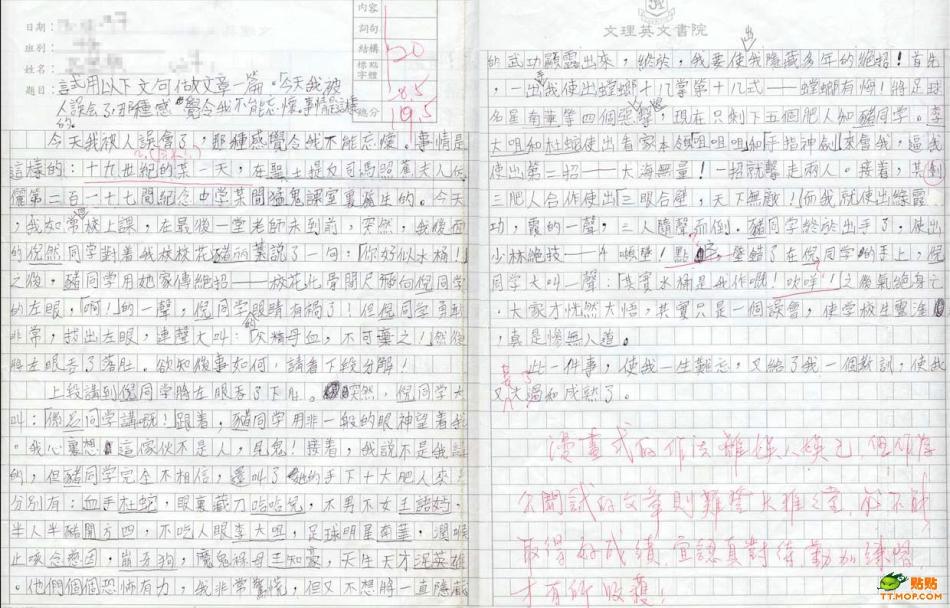 日期:
班別:
姓名:
題目: 試用以下文句做文章一篇。今天我被
人誤會了,那種感覺令我不能忘懷。事情是這樣
的。
內容
詞句
結構
標點
字體
總分
20
19.5
今天我被人誤會了,那種感覺令我不能忘懷。事情是
這樣的:十九世紀的某一天,在聖士提反司馮照蕙夫人
第二百一十七間紀念中學某間猛鬼課室裏發生的。今天
,我如常校上課,在最後一堂老師未到前,突然,我後面
的倪然同學對着我校校花豬丙說了一句:「你好似水桶!」
之後,豬同學用她家傳絕招——校花化骨間尺插向倪同學
的左眼,「啊!」的一聲,倪同學眼睛有禍了!但倪同學勇
非常,拔出左眼,連聲大叫:「父精母血,不可棄之!」然後
將左眼吞了落肚。欲知後事如何,請看下段分解!
上段講到倪同學將左眼吞了下肚。突然,倪同學大
叫:「係呂同學講嘅!」跟着,豬同學用非一般的眼神望着我
。我心裏想這家伙不是人,見鬼!接着,我說不是我講
的,但豬同學完全不相信,還叫了她的手下十大肥人來,
分別有:血手杜蛇,眼裏藏刀哈哈兒,不男不女王諾
半人半豬開方四,不吃人眼李大咀,足球明星南華,潤喉
止咳念慈因,崩牙狗,魔鬼祖母王知豪,天生天才
。他們個個恐怖有力,我非常驚慌,但又不想將一直隱藏
文理英文書院
的武功顯露出來,終於,我要使出我隱藏多年的絕招!首先
,一出手我使出螳螂十八掌第十八式——螳螂有悔!將足球
名星南華等四個,現在只剩下五個肥人和豬同學。李
大咀和杜蛇使出看家本領「咀咀咀」和「手指神劍」來會我,逼我
使出第二招——大海無量!一招就擊走兩人。接着,其
三肥人合作使出「三眼合璧,天下無敵」!而我就使出綠
功,霞的一聲,三人隨聲而倒。豬同學終於出手了,使出
少林絕技——點 錯了在倪同學的手上,倪
同學大叫一聲:「其實水桶是我作嘅!吹咩!」之後氣絕身亡
。大家才恍然大悟,其實只是一個誤會,使學校生靈塗
,真是慘無人道。
此一件事,使我一生難忘,又給了我一個教訓,使我
又大過和成熟了。
漫畫式的作法雖娛人娛己,但作為
公開試的文章則難登大雅之堂,亦不能
取得好成績,宜認真對待,勤加練習
才有所收獲!
貼貼
TT.MOP.COM